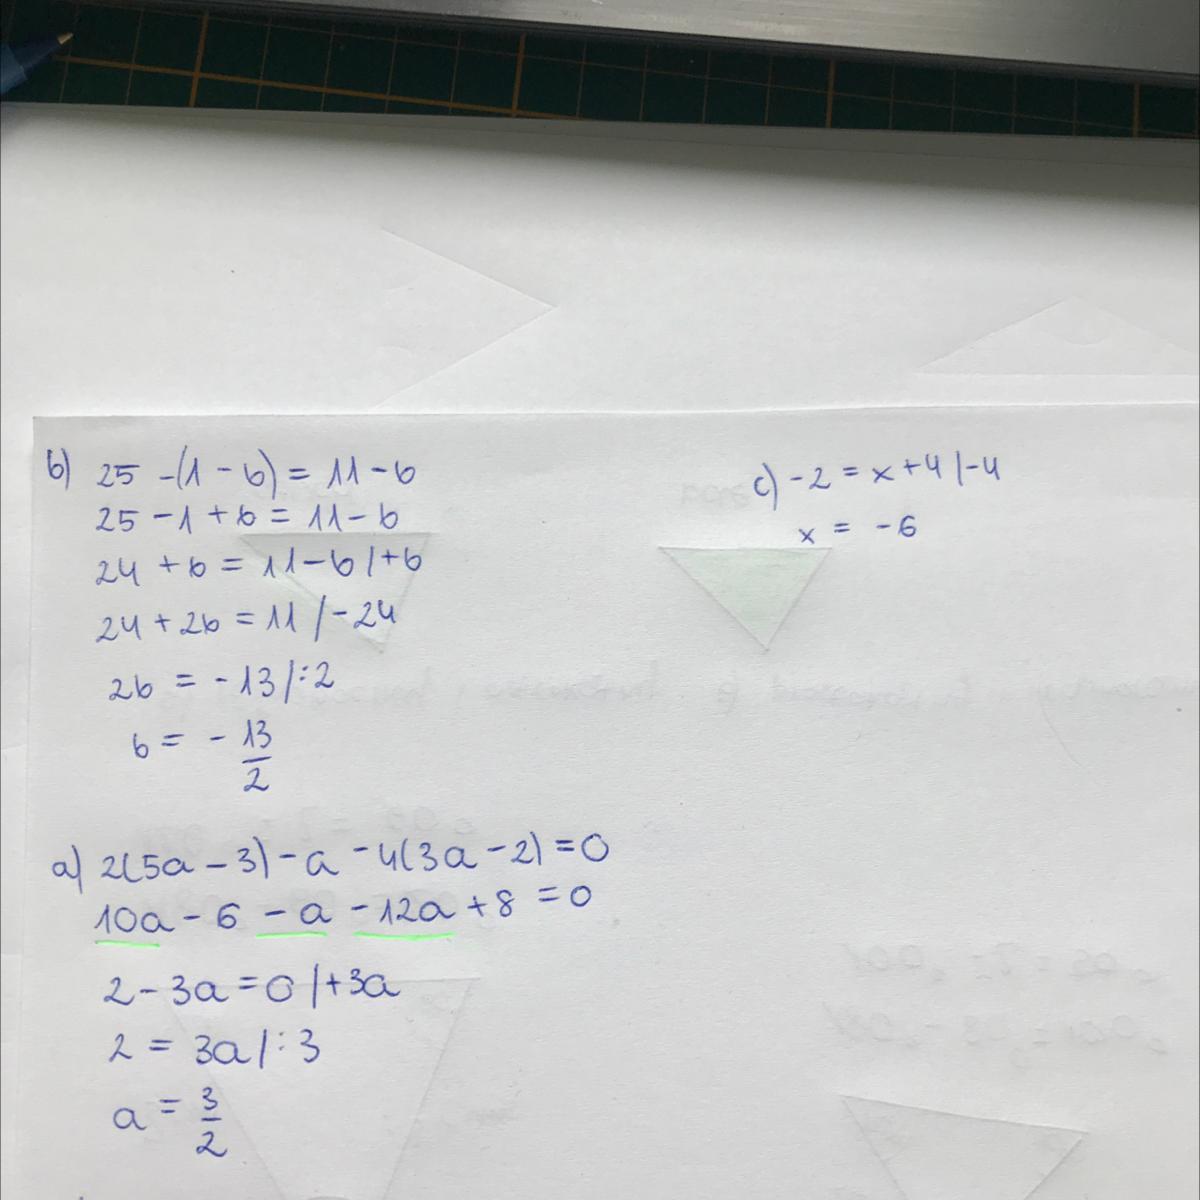 b) 25 -(1 - b) = 11 - b
25 - 1 + b = 11 - b
24 + b = 11 - b |+b
24 + 2b = 11 | -24
2b = -13 |:2
b = - 13/2
c) -2 = x + 4 | -4
x = -6
a) 2(5a - 3) - a - 4(3a - 2) = 0
10a - 6 - a - 12a + 8 = 0
2 - 3a = 0 | +3a
2 = 3a | : 3
a = 3/2